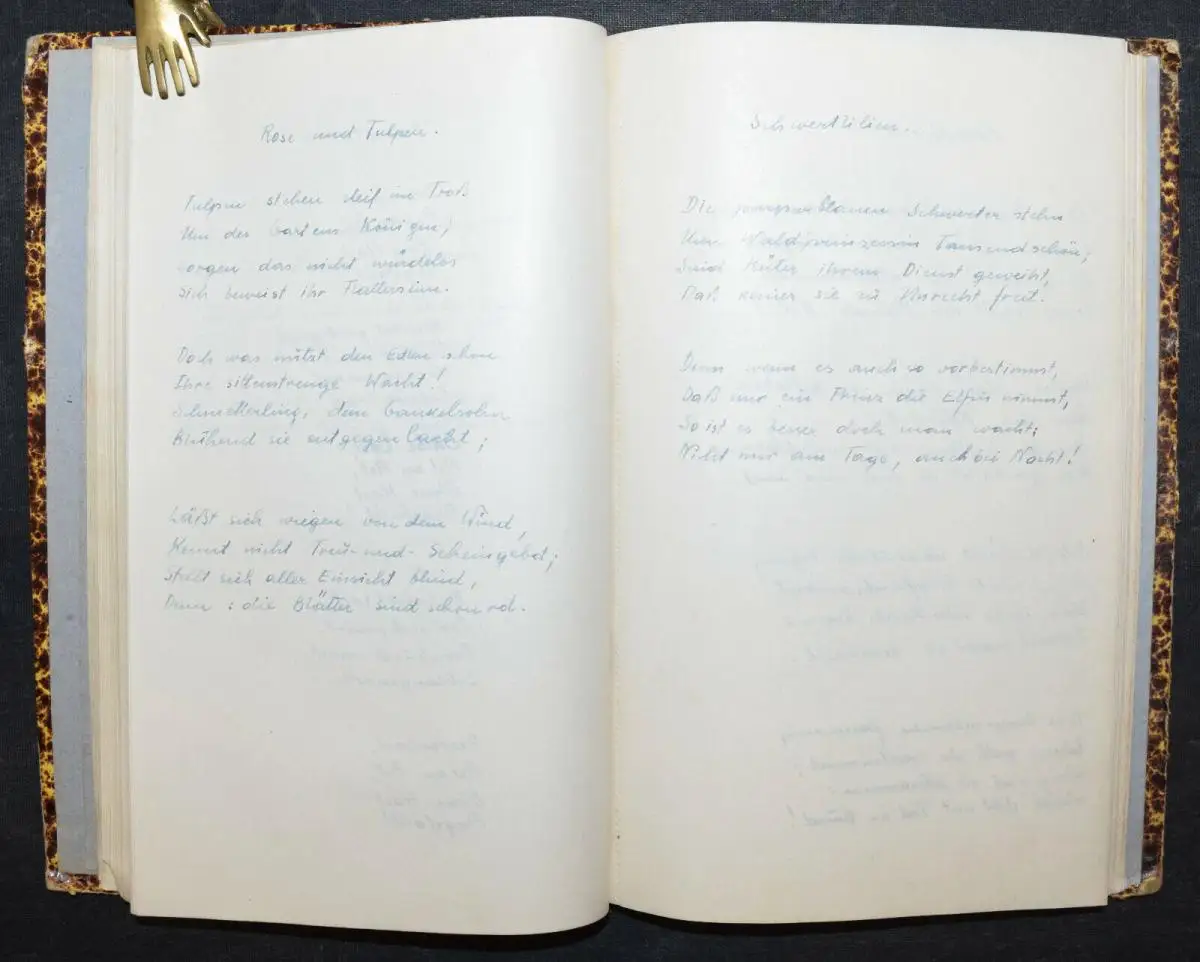 Rose und Tulpen.
Tulpen stehen steif im Troß
Um des Gartens Königin,
sorgen das nicht würdelos
Sich beweist ihr Flattersinn.
Doch was nützt den Edlen schon
Ihre sittenstrenge Wacht!
Schmetterling, dem Gaukelsohn
Blühend sie entgegen lacht;
Läßt sich wiegen von dem Wind,
Kennt nicht Treu-und-Scheingebot;
Stellt sich aller Einsicht blind,
Denn: die Blätter sind schon rot.
Schwertlilien.
Die purpurblauen Schwerter stehn
Um Waldprinzessin Tausendschön;
Sind Hüter ihrem Dienst geweiht,
Daß keiner sie zu Unrecht freit.
Denn wenn es auch so vorbestimmt,
Daß nur ein Prinz die Elfin nimmt,
So ist es besser doch man wacht;
Nicht nur am Tage, auch bei Nacht!